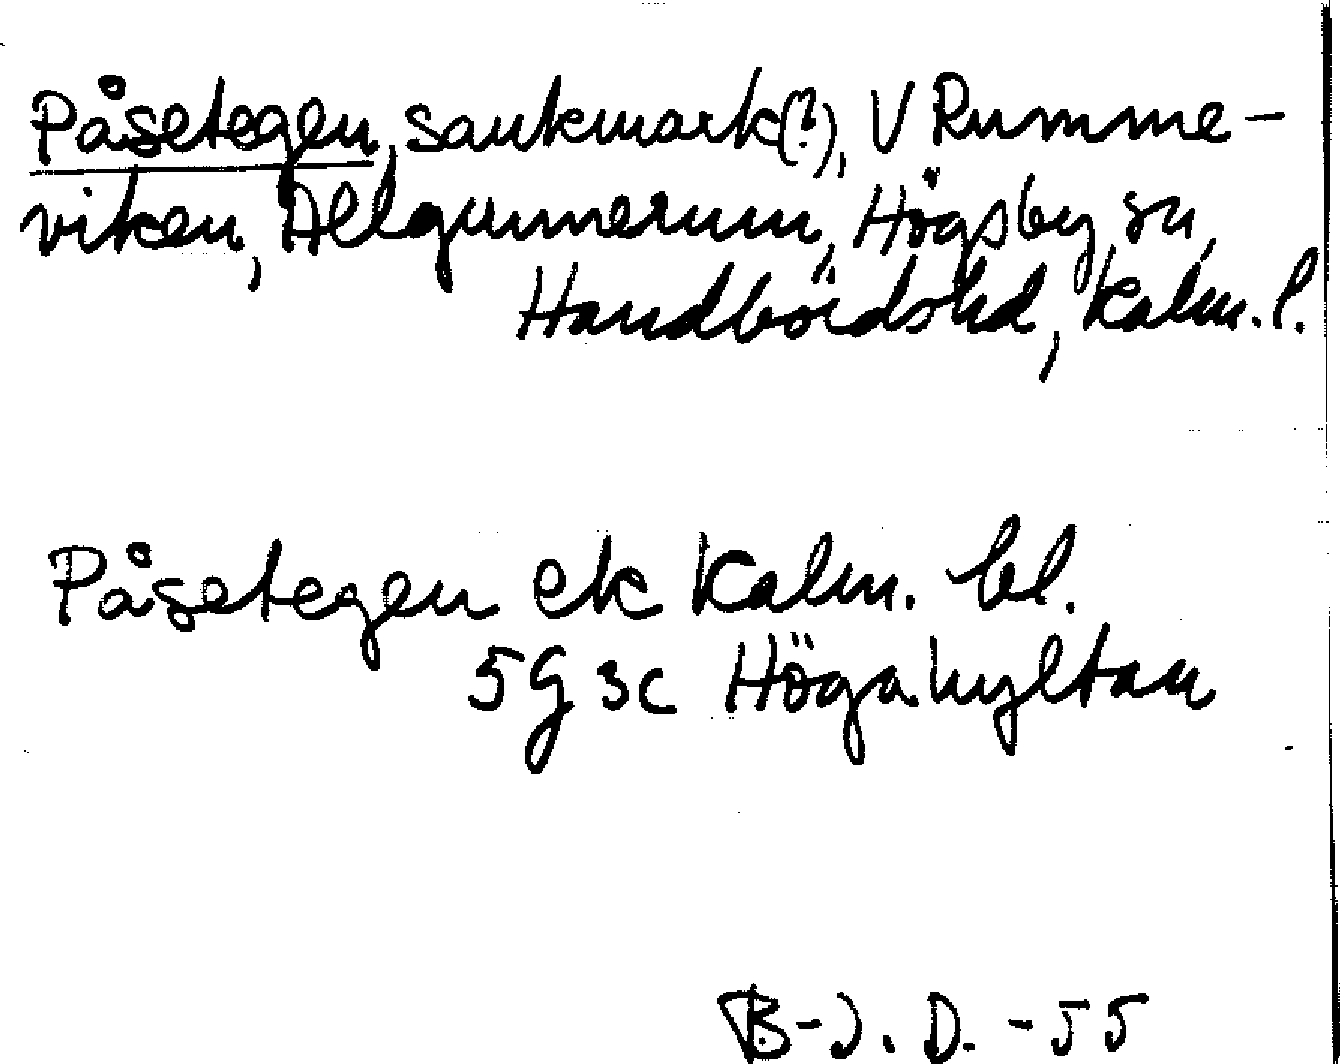 Påsetegen, sankmark(?), V Rumme-
viken, Allgunnerum, Högsby sn,
Handbörds hd, Kalm. l.
Påsetegen ek Kalm. bl.
5G 3c Högahyltan
B-J. D. -55